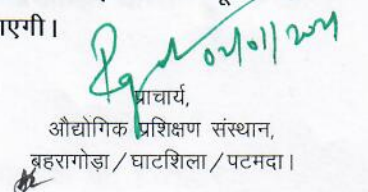 ाएगी।
02/01/2021
प्राचार्य,
औद्योगिक प्रशिक्षण संस्थान,
बहरागोड़ा/घाटशिला/पटमदा।